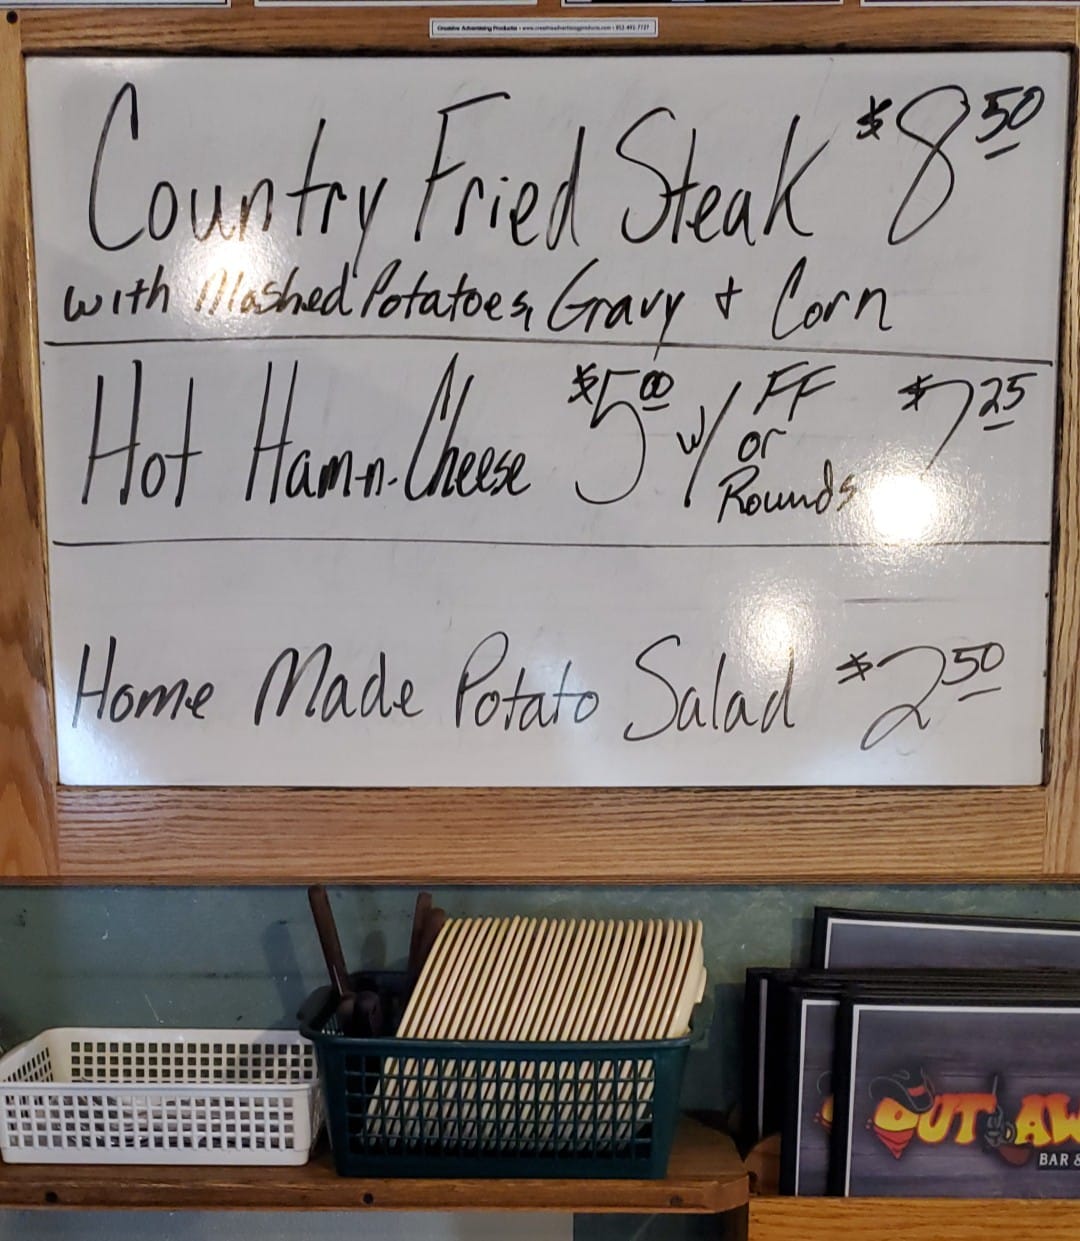 Creative Advertising Products • www.creativeadvertisingproducts.com • 952-492-7727
Country Fried Steak $8 50
with Mashed Potatoes, Gravy + Corn
Hot Ham-n-Cheese $5 00 w/ FF or Rounds $7 25
Home Made Potato Salad $2 50
OUTLAW
BAR &